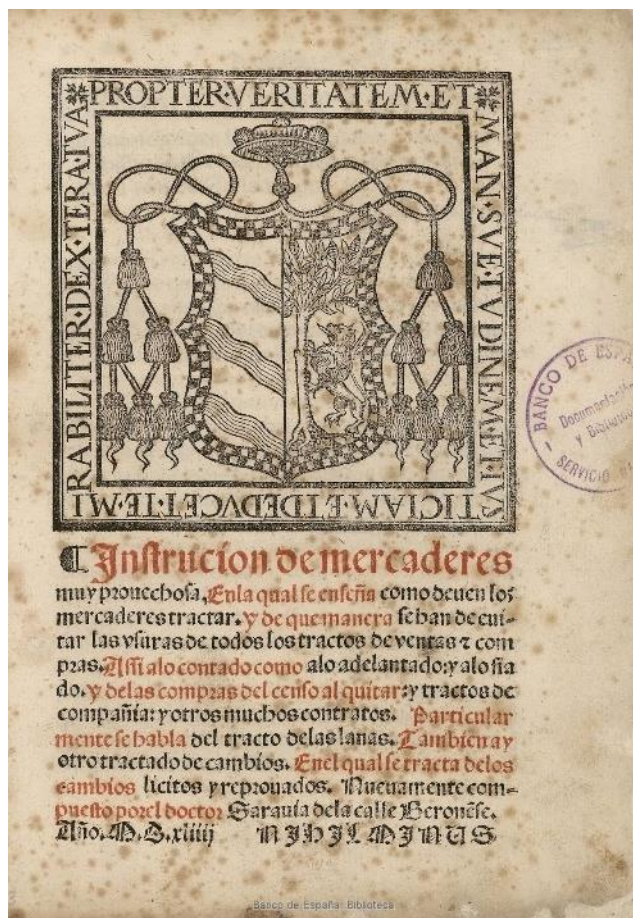 PROPTER·VERITATEM·ET·
MAN·SVE·TVDINEM·ET·IVS
TICIAM·ET·DEDVCET·TE·MI
RABILITER·DEX·TERA·TVA
BANCO DE ESPA
Documentación
y Biblioteca
SERVICIO
Instrucion de mercaderes
muy prouechosa, Enla qual se enseña como deuen los
mercaderes tractar. y de que manera se han de eui-
tar las vsuras de todos los tractos de ventas ⁊ com
pras. Assi alo contado como alo adelantado: y alo fia
do. y delas compras del censo al quitar: y tractos de
compañia: y otros muchos contratos. Particular
mente se habla del tracto delas lanas. Tambien ay
otro tractado de cambios. Enel qual se tracta delos
cambios licitos y reprouados. Nueuamente com-
puesto porel doctor Sarauia dela calle Veronẽse.
Año. M. D. xliiij NIHIL MINUS
Banco de España. Biblioteca